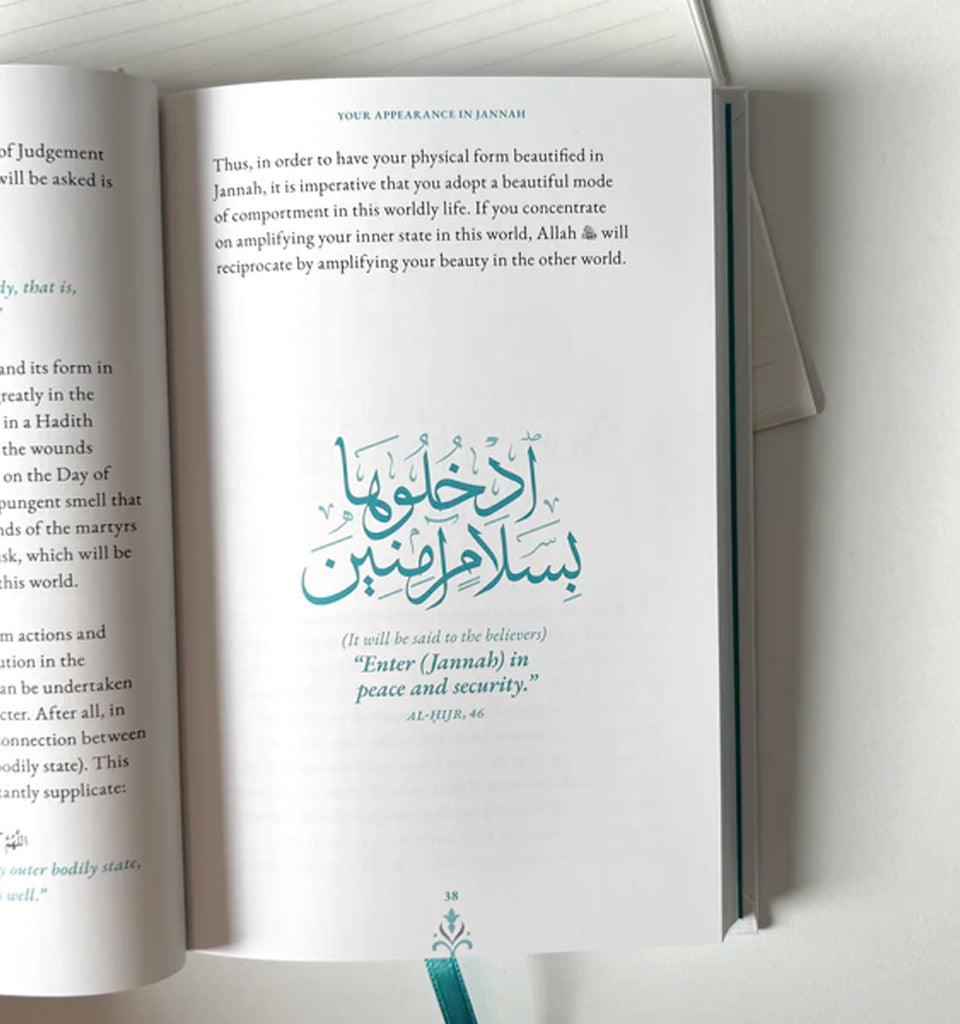 of Judgement
will be asked is
dy, that is,
and its form in
reatly in the
in a Hadith
the wounds
on the Day of
pungent smell that
nds of the martyrs
sk, which will be
this world.
m actions and
ution in the
an be undertaken
cter. After all, in
onnection between
odily state). This
tantly supplicate:
اللهم
y outer bodily state,
s well.”
YOUR APPEARANCE IN JANNAH
Thus, in order to have your physical form beautified in
Jannah, it is imperative that you adopt a beautiful mode
of comportment in this worldly life. If you concentrate
on amplifying your inner state in this world, Allah ﷻ will
reciprocate by amplifying your beauty in the other world.
ٱدْخُلُوهَا
بِسَلَامٍ آمِنِينَ
(It will be said to the believers)
“Enter (Jannah) in
peace and security.”
AL-ḤIJR, 46
38